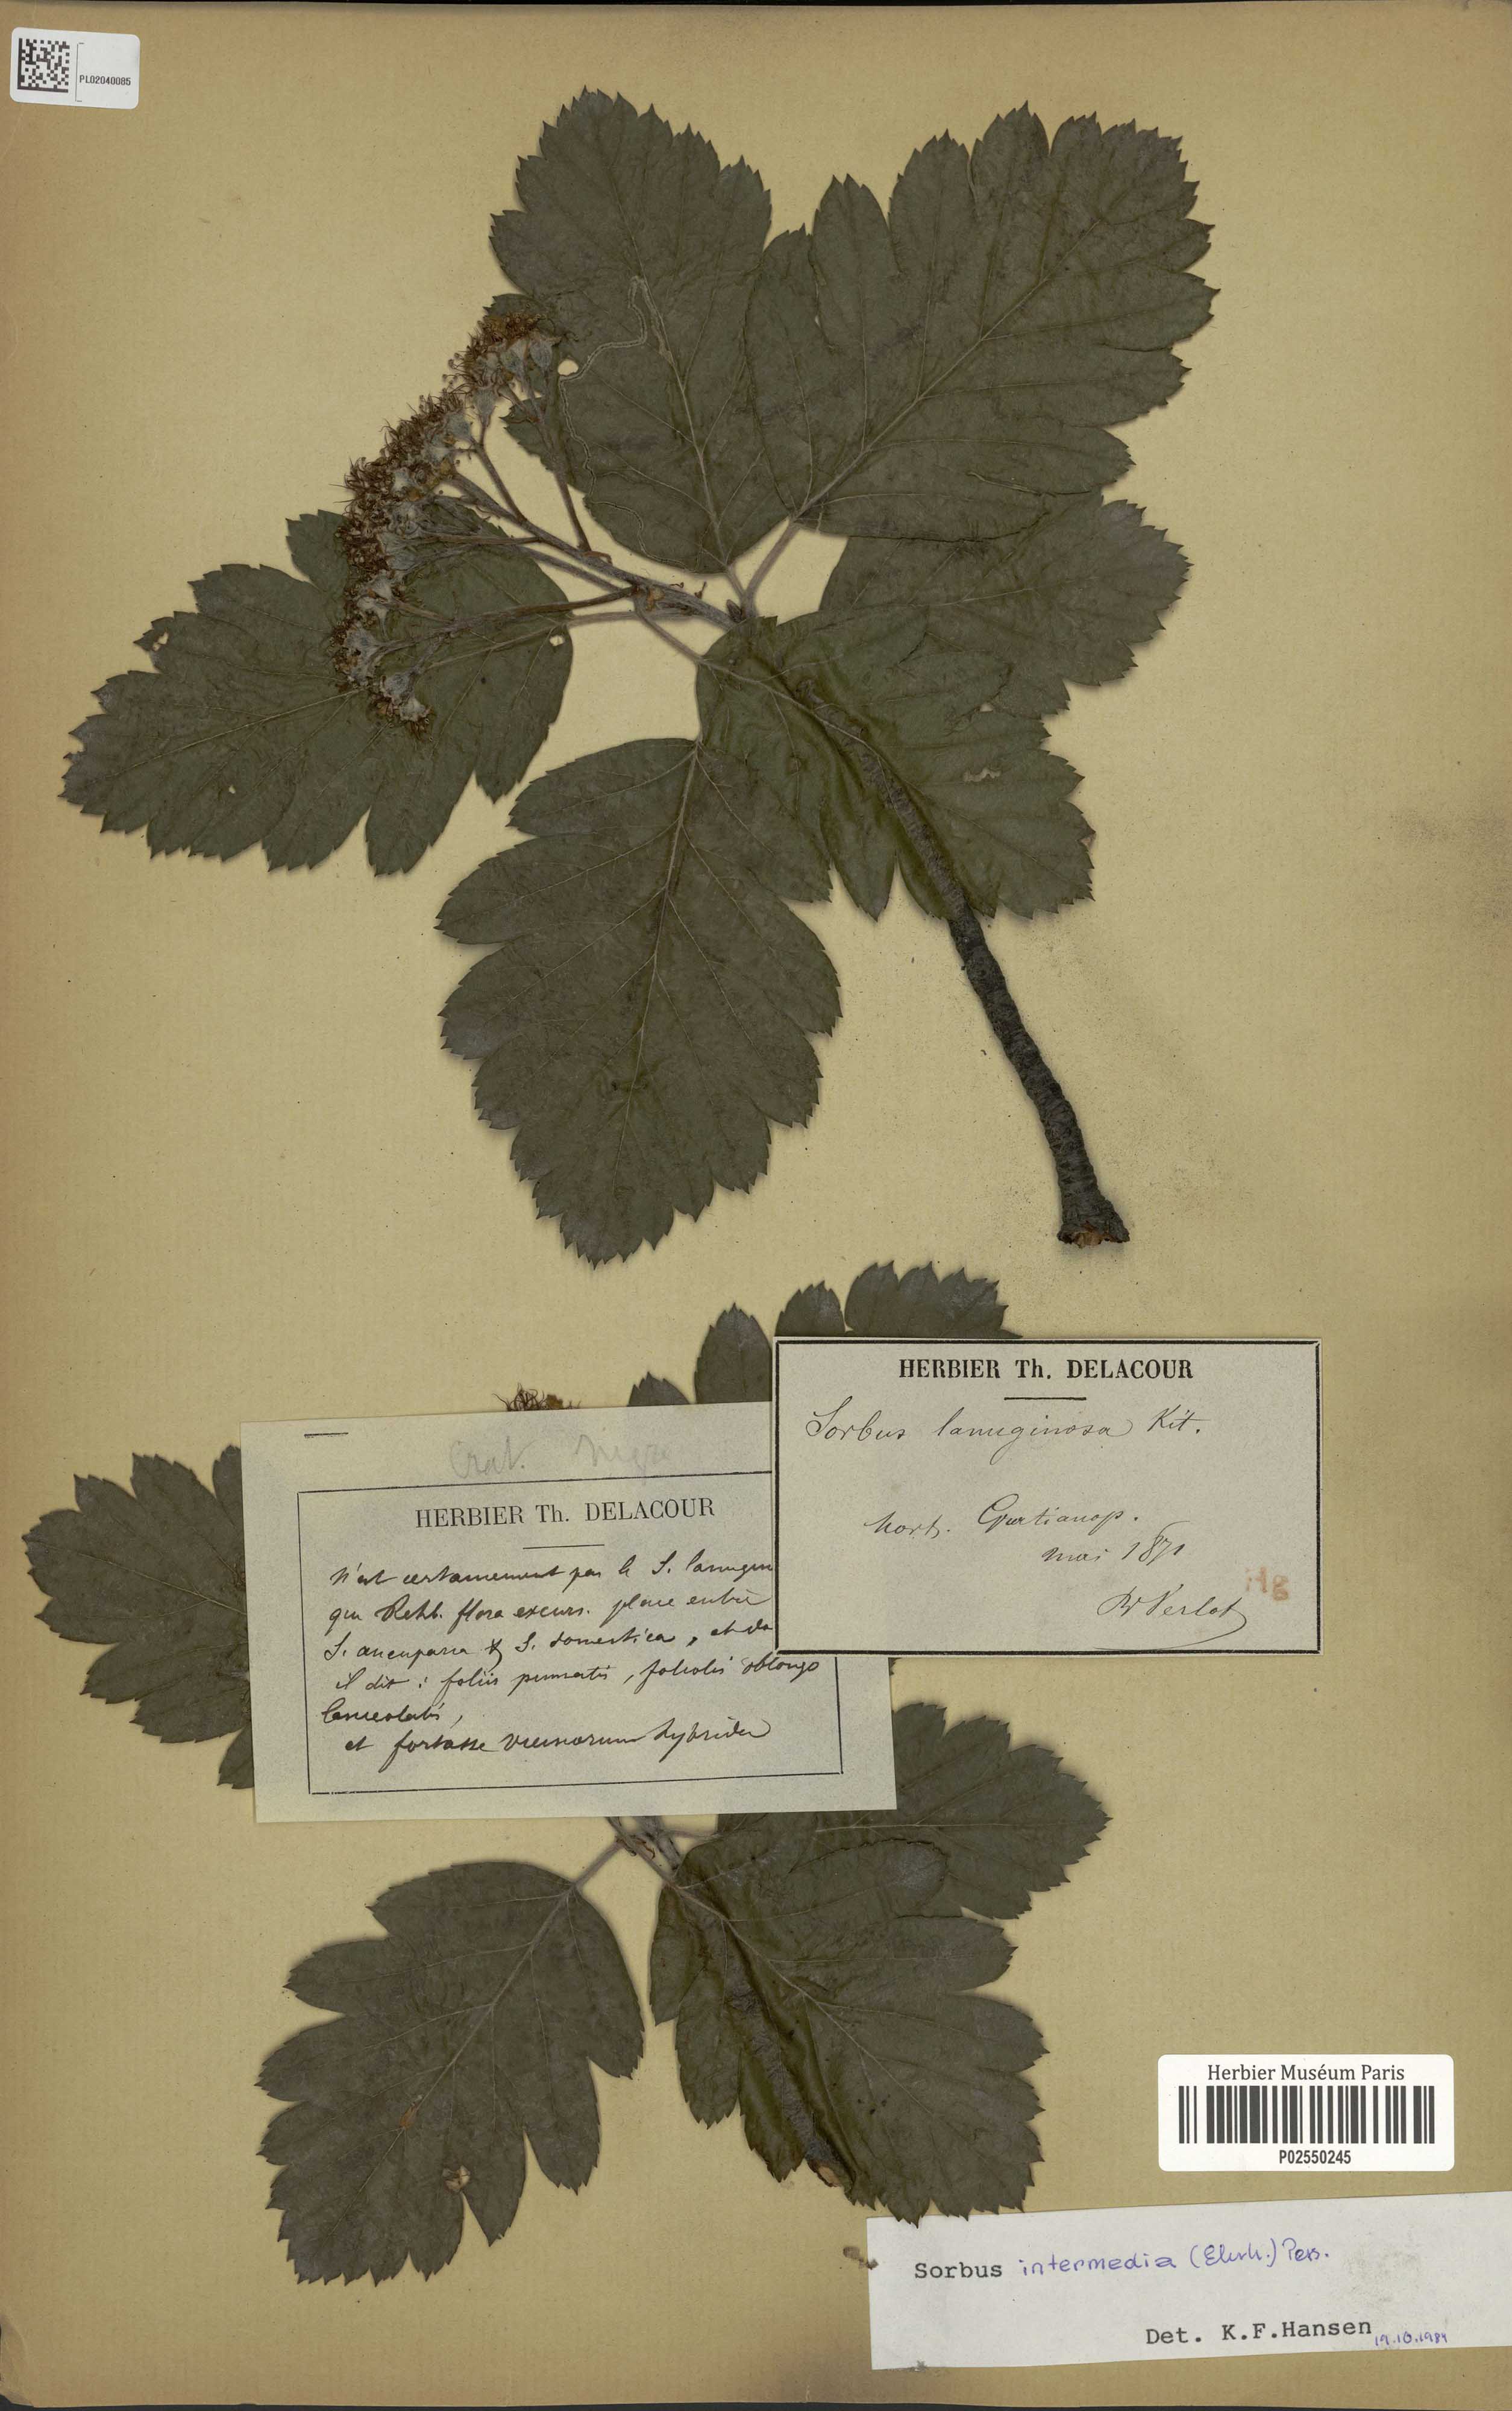 PL02040085
HERBIER Th. DELACOUR
Sorbus lanuginosa Kit.
hort. Gratianop.
mai 1871
B Verlot
Hg
Crat.
HERBIER Th. DELACOUR
n'est certainement pas le S. lanugin
que Rchb. flora excurs. place entre
S. aucuparia & S. domestica, et do
il dit : foliis pinnatis, foliolis oblongo
lanceolatis,
et fortasse vicinorum hybrida
Herbier Muséum Paris
P02550245
Sorbus intermedia (Ehrh.) Pers.
Det. K.F.Hansen 19.10.1984